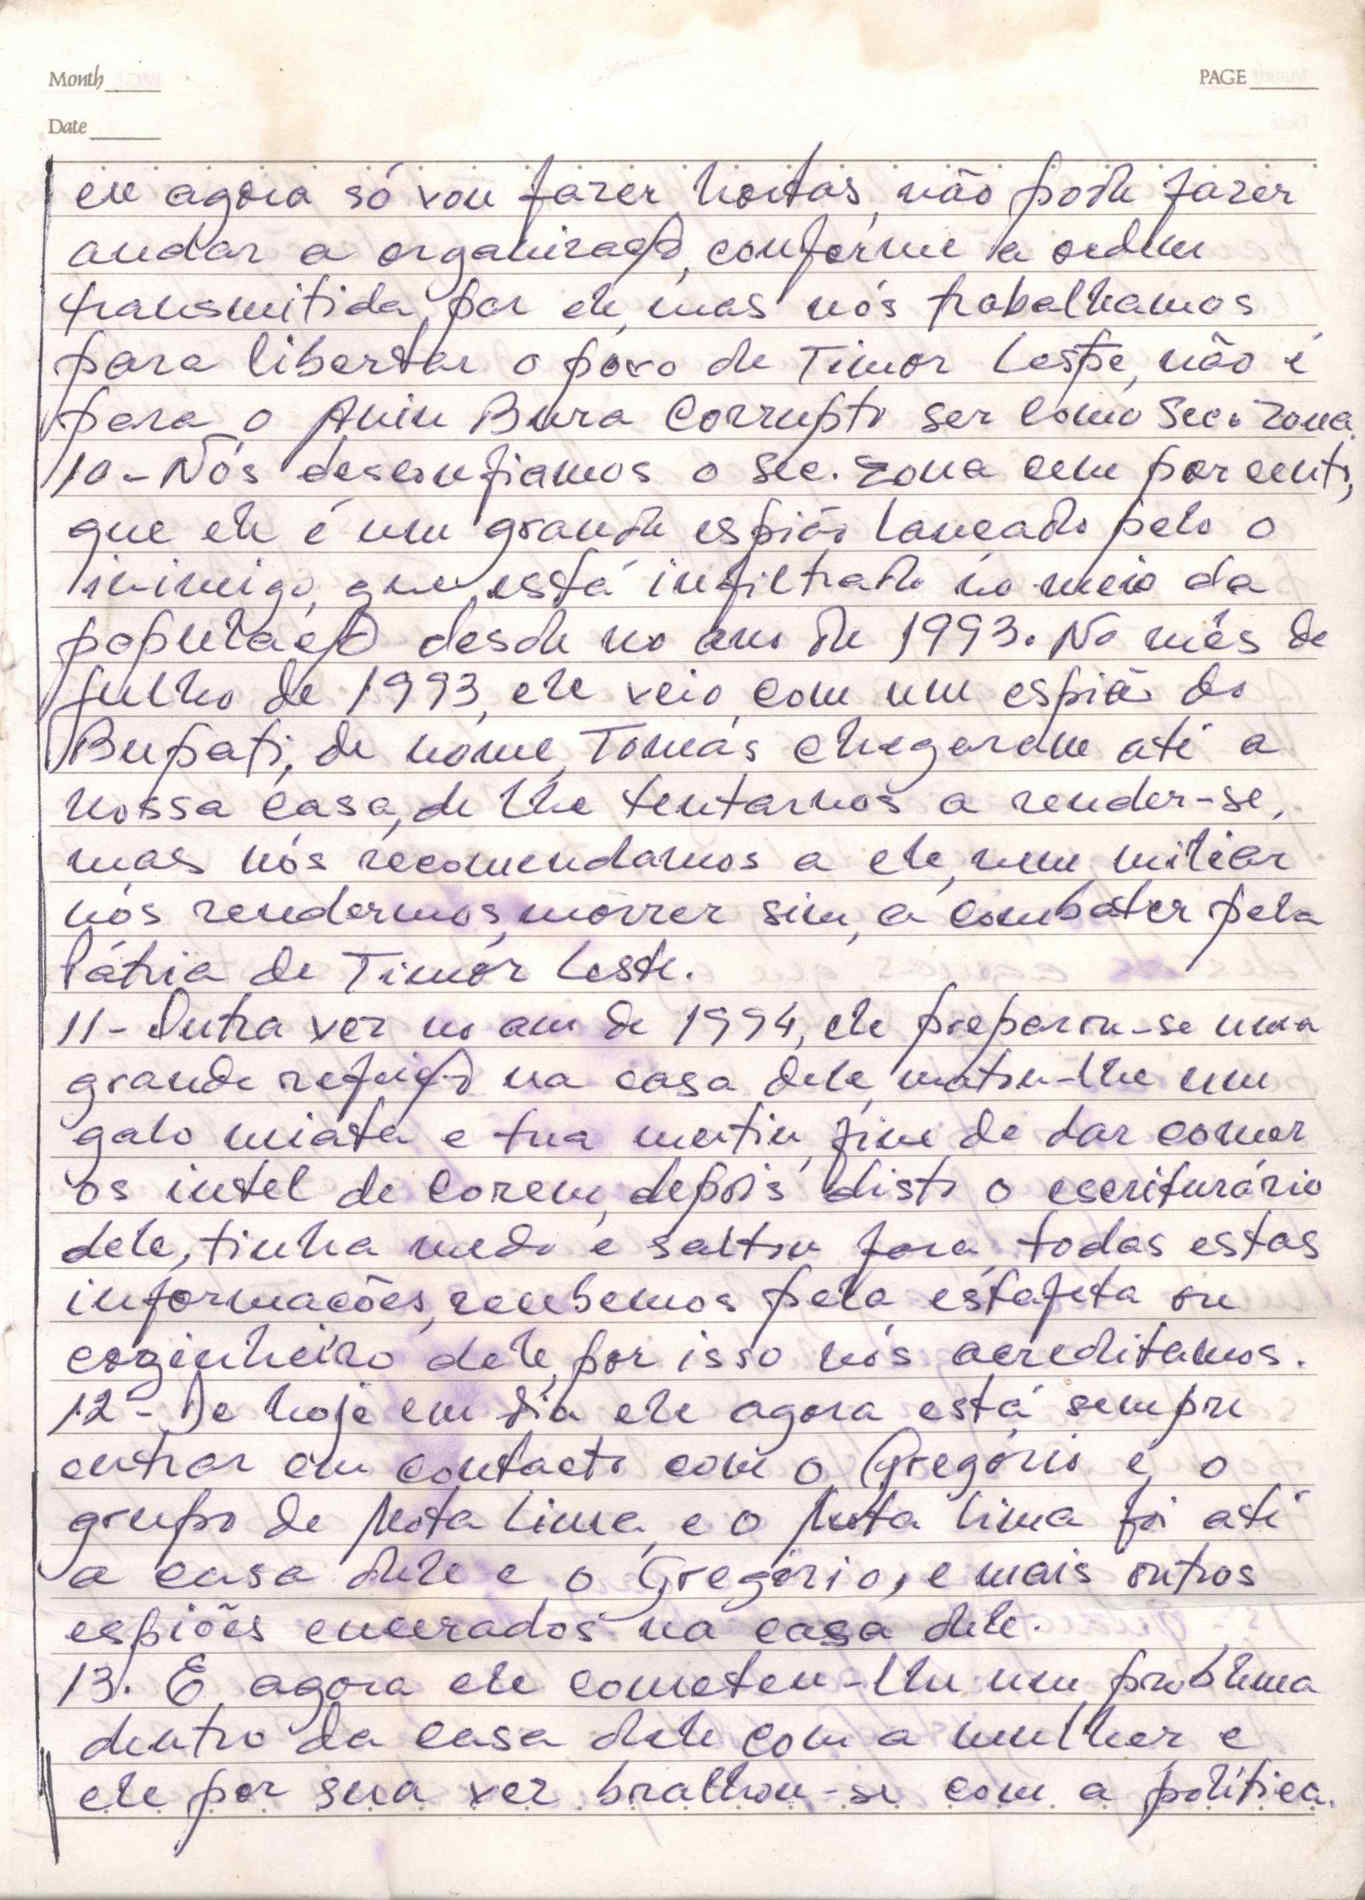 Month
PAGE
Date
eu agora só vou fazer hortas, não pode fazer
andar a organização, conforme a ordem
transmitida por ele, mas nós trabalhamos
para libertar o povo de Timor Leste, não é
para o Anin Bura Corrupto ser como Sec. Zona.
10- Nós desconfiamos o Sec. Zona cem por cento,
que ele é um grande espião lançado pelo o
inimigo, que está infiltrado no meio da
população desde no ano de 1993. No mês de
julho de 1993, ele veio com um espião do
Bupati, de nome Tomás chegaram até a
nossa casa, de lhe tentarnos a render-se,
mas nós recomendamos a ele, nem miliar
nós rendermos, morrer sim, a combater pela
Pátria de Timor Leste.
11- Outra vez no ano de 1994, ele preparou-se uma
grande refeição na casa dele, matou-lhe um
galo miata e tua mutin, fim de dar comer
os intel de Corem, depois disto o escriturário
dele, tinha medo e saltou fora, todas estas
informações, recebemos pela estafeta ou
cozinheiro dele, por isso nós acreditamos.
12- De hoje em dia ele agora está sempre
entrar em contacto com o Gregório e o
grupo de Mota Lima, e o Mota Lima foi até
a casa dele e o Gregório, e mais outros
espiões encerados na casa dele.
13. E agora ele cometeu-lhe um problema
dentro da casa dele com a mulher e
ele por sua vez bralhou-se com a política.